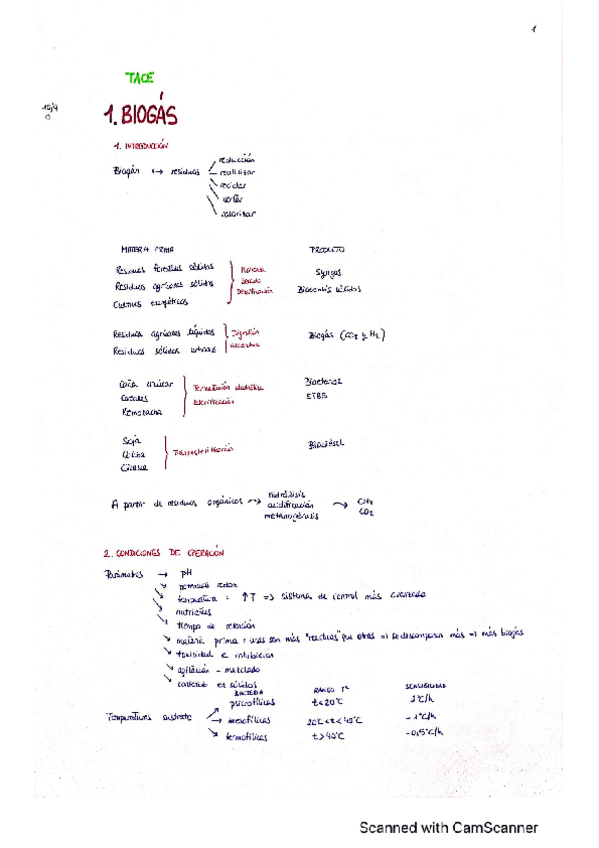 1
TACE
1. BIOGÁS
1. INTRODUCCIÓN
Biogás ↔ residuos
reducción
reutilizar
reciclar
valorizar
MATERIA PRIMA PRODUCTO
Residuos forestales sólidos
Residuos agrícolas sólidos
Cultivos energéticos
Syngas
Biocomb. sólidos
Residuos agrícolas líquidos
Residuos sólidos urbanos
Digestión
Biogás (CO2 y H2)
Caña azúcar
Cereales
Remolacha
Fermentación alcohólica
Bioetanol
ETBE
Soja
Colza
Girasol
Transesterificación
Biodiésel
A partir de residuos orgánicos →
hidrólisis
acidificación
metanogénesis
→ CH4
CO2
2. CONDICIONES DE OPERACIÓN
Parámetros → pH
potencial redox
temperatura : ↑T => sistema de control más avanzado
nutrientes
tiempo de retención
materia prima : unas son más "reactivas" que otras => se descomponen más => más biogás
toxicidad e inhibición
agitación - mezclado
contenido en sólidos
BACTERIA RANGO Tª SENSIBILIDAD
Temperaturas sustrato
psicrofílicas t<20ºC 2ºC/h
mesofílicas 20ºC<t<40ºC ~1ºC/h
termofílicas t>40ºC ~0,5ºC/h
Scanned with CamScanner